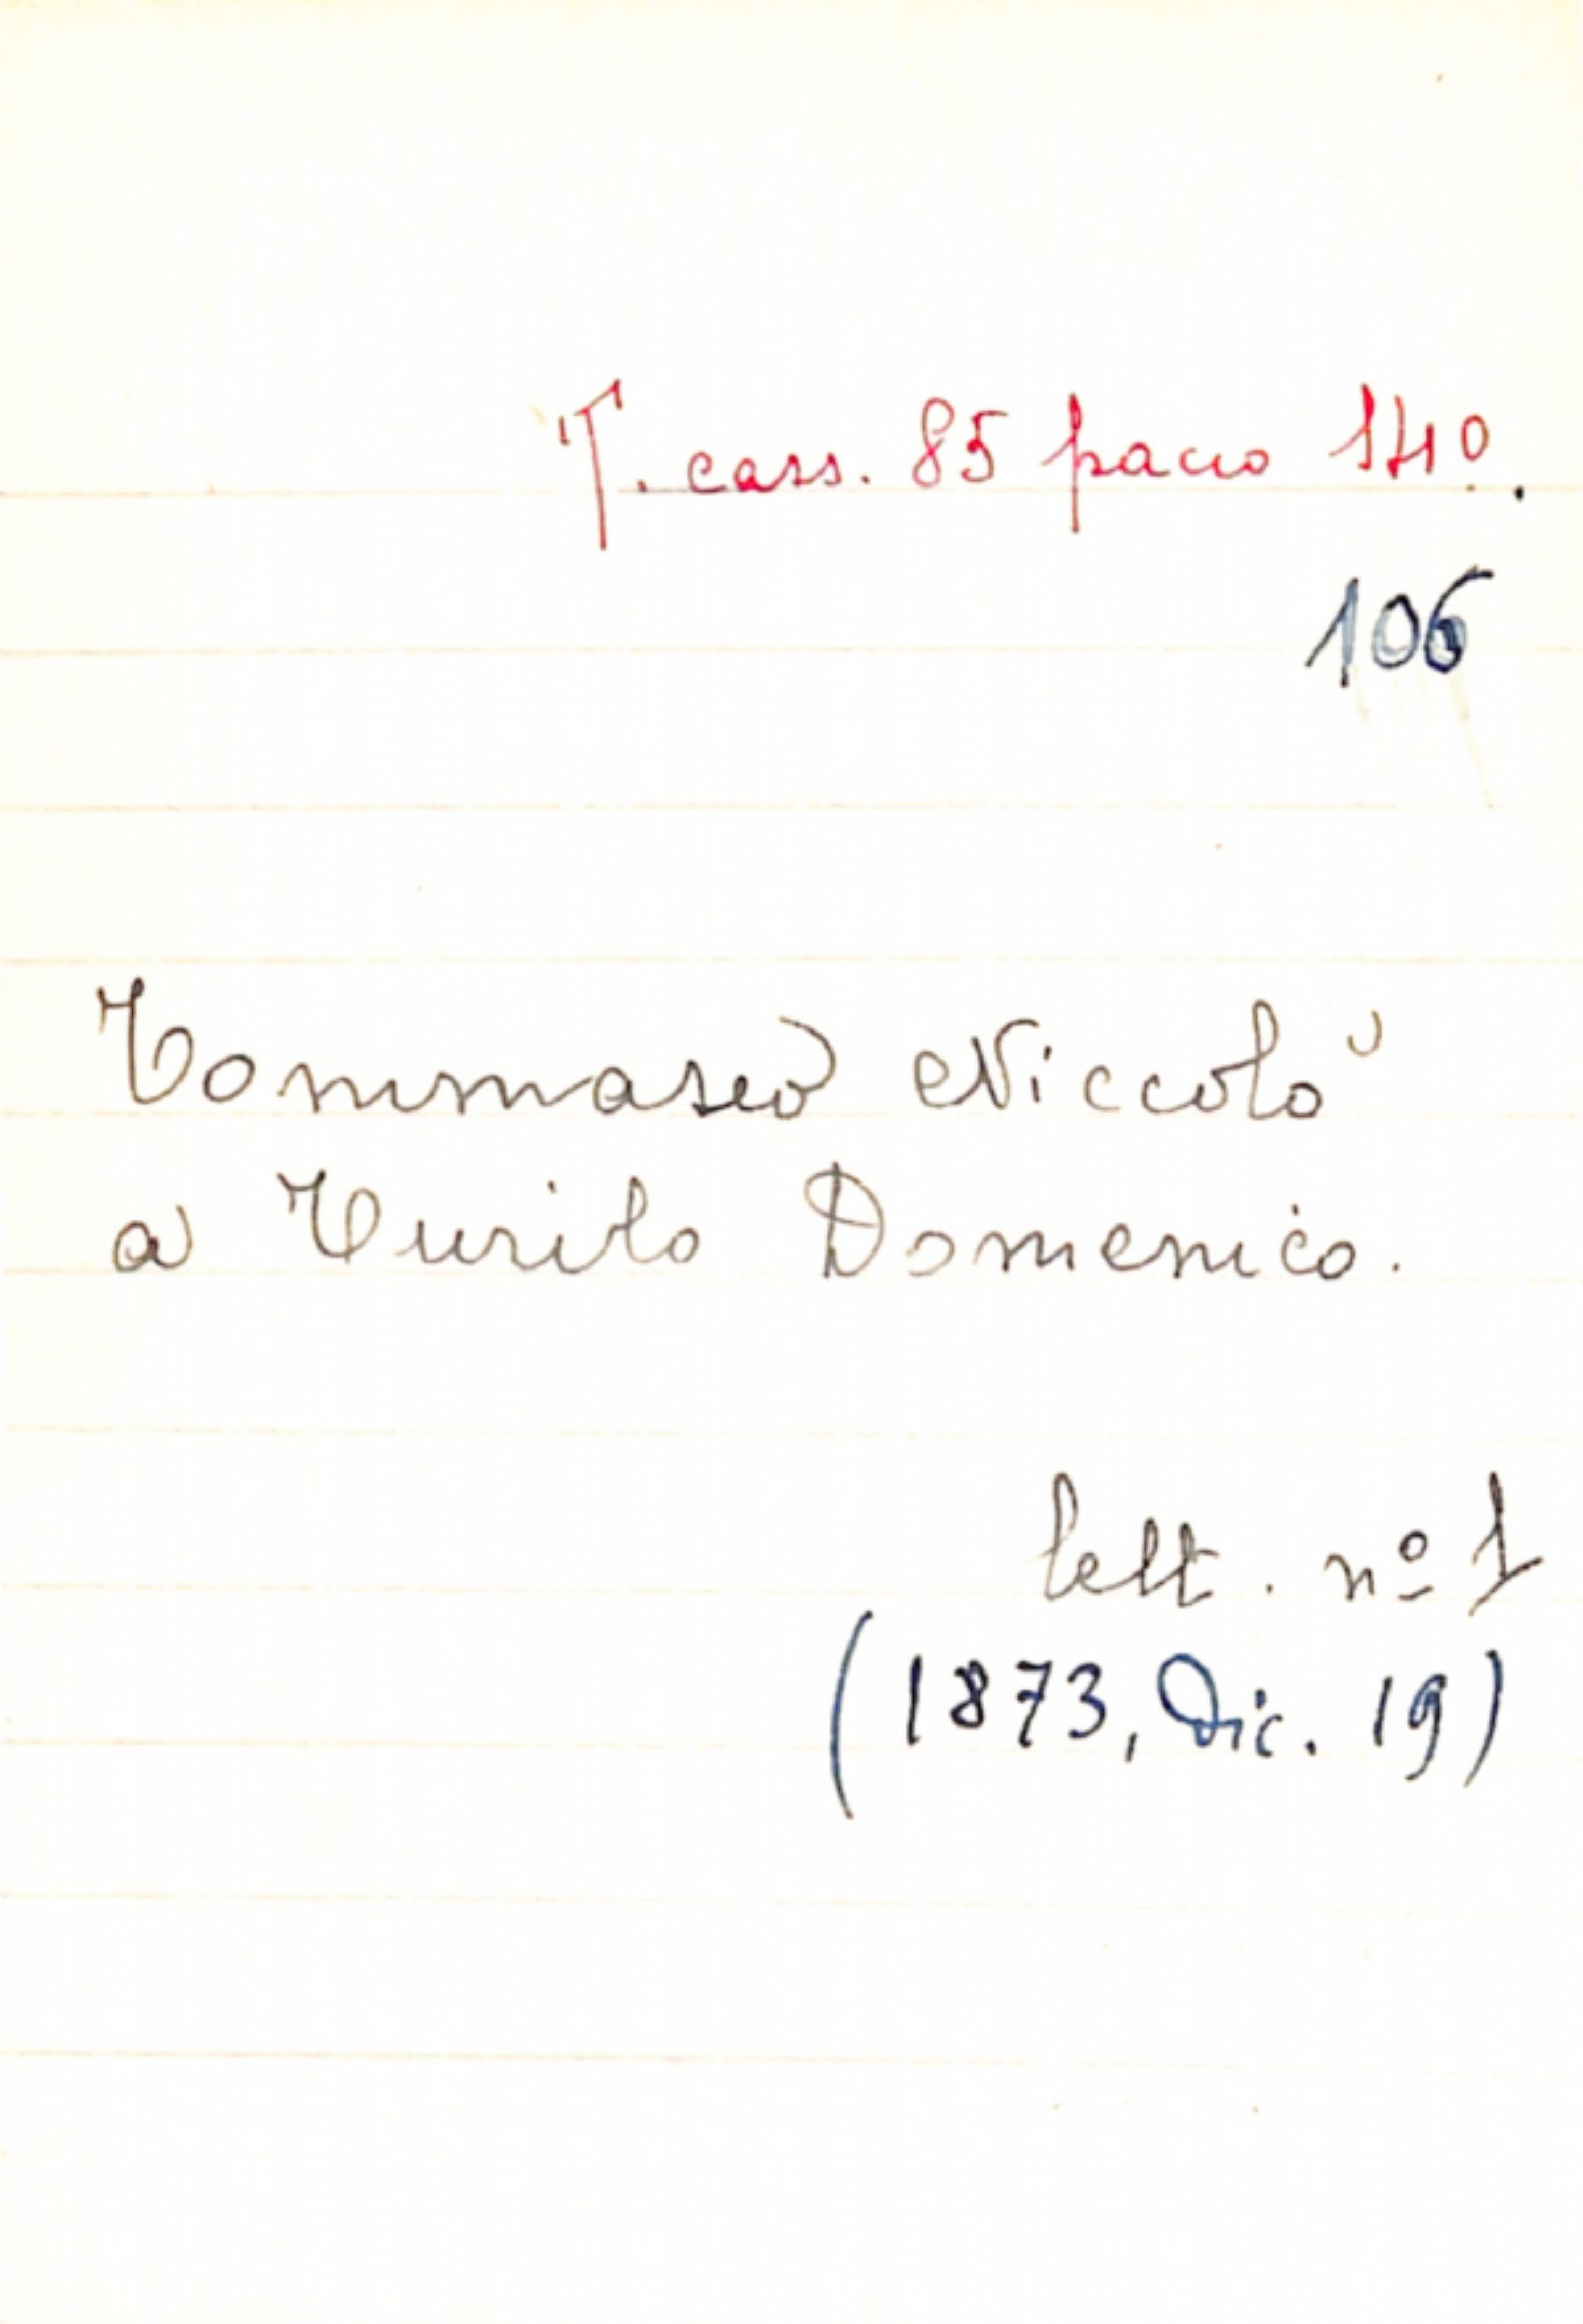 T. cass. 85 pacco 140.
106
Tommaseo Niccolò
a Turito Domenico.
lett. nº 1
(1873, Dic. 19)